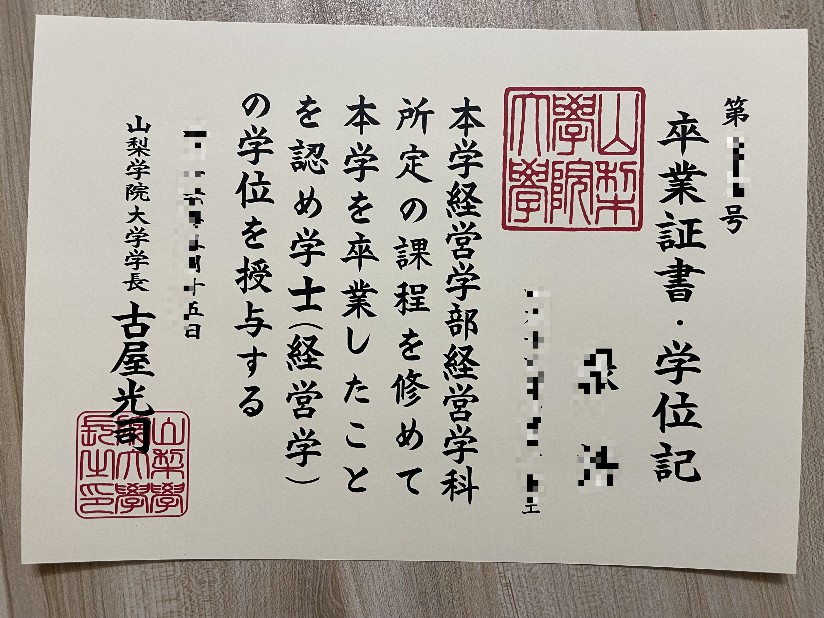 第 号
卒業証書・学位記
山梨
學院
大學
本学経営学部経営学科
所定の課程を修めて
本学を卒業したこと
を認め学士(経営学)
の学位を授与する
月十五日
山梨学院大学学長 古屋光司
山梨學
院大學
長之印